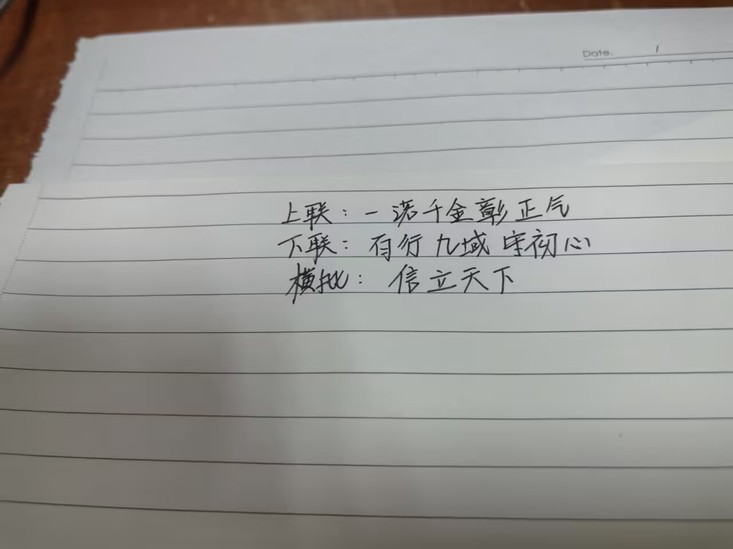 Date. /
上联：一诺千金彰正气
下联：百行九域守初心
横批：信立天下